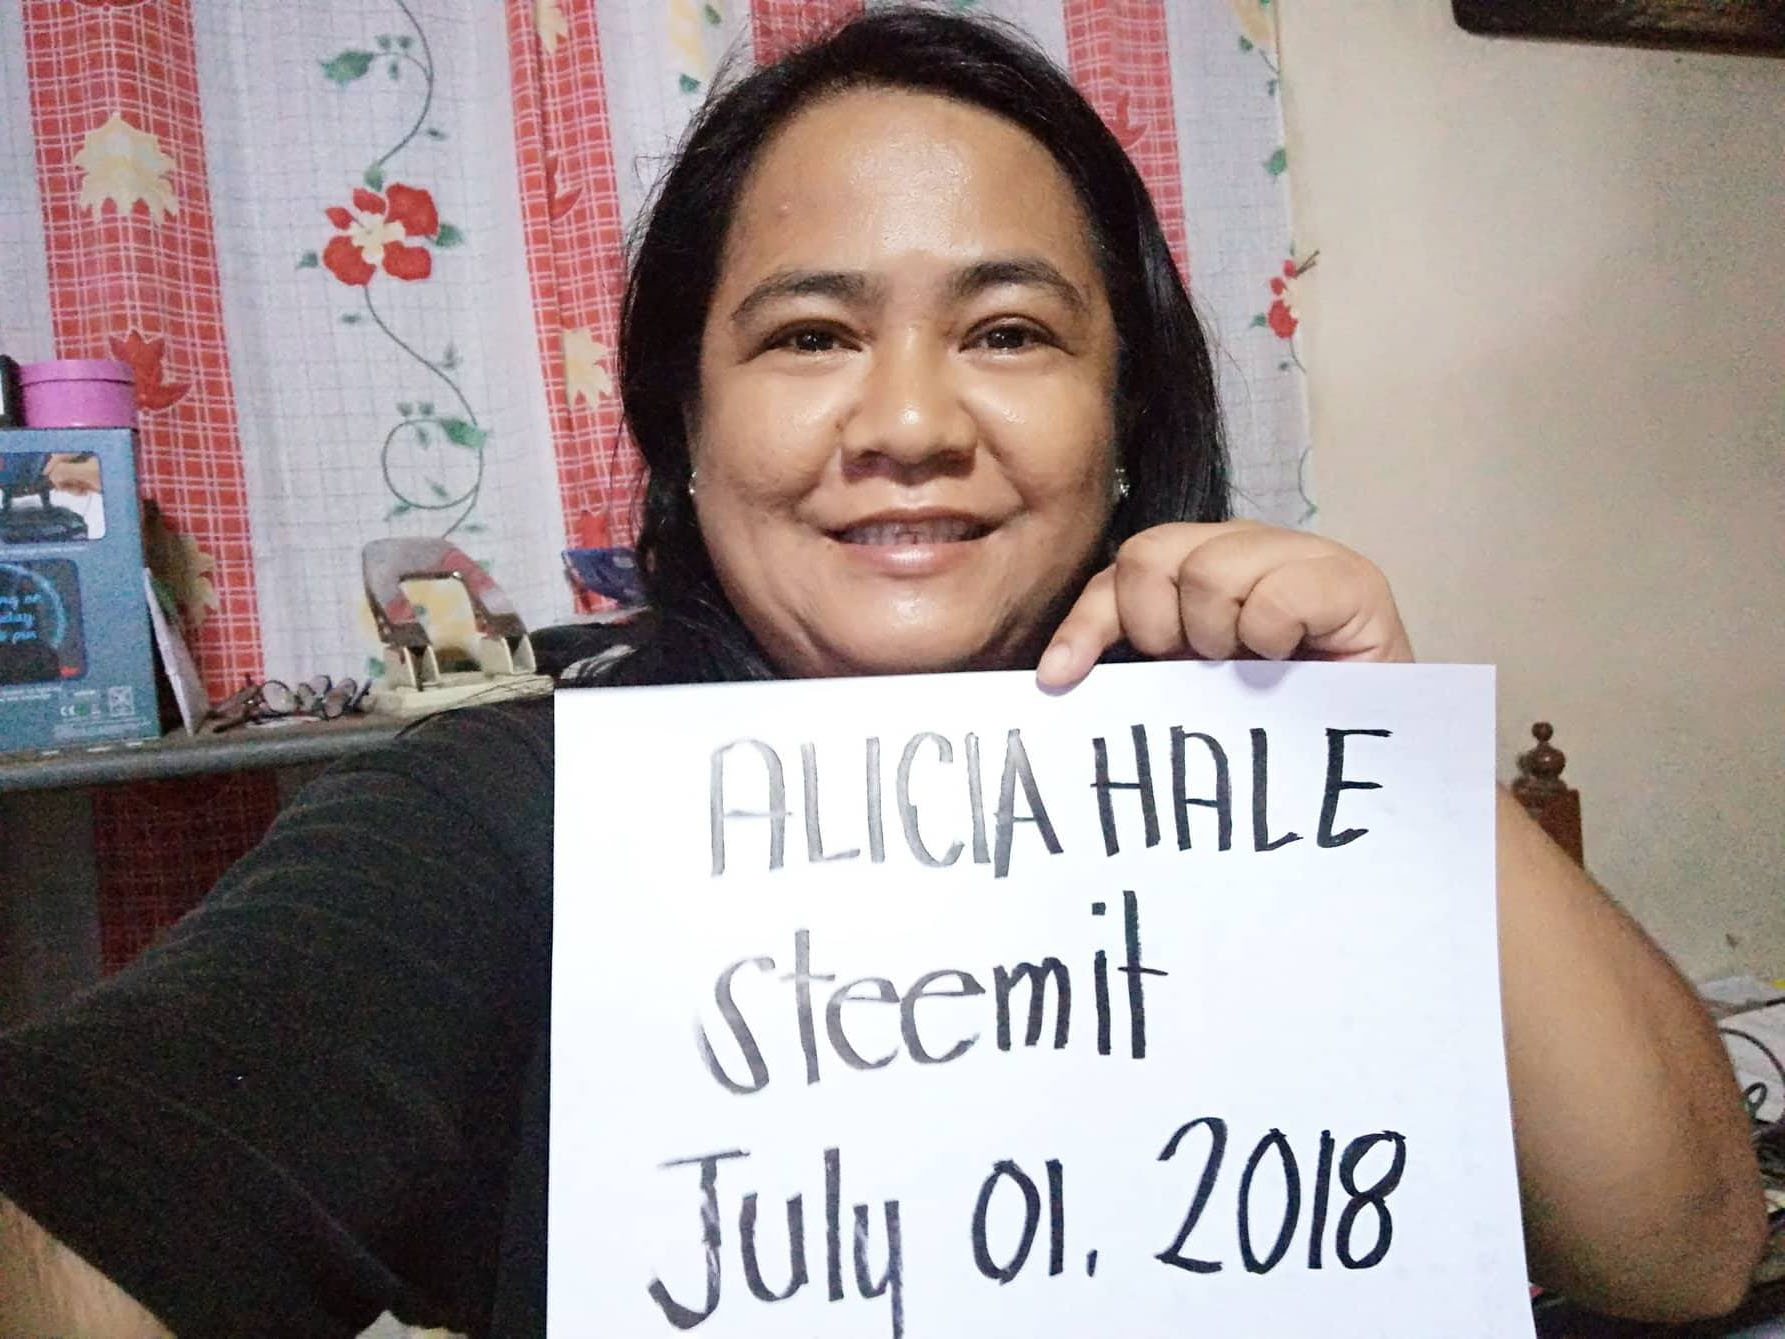 ALICIA HALE
steemit
July 01. 2018